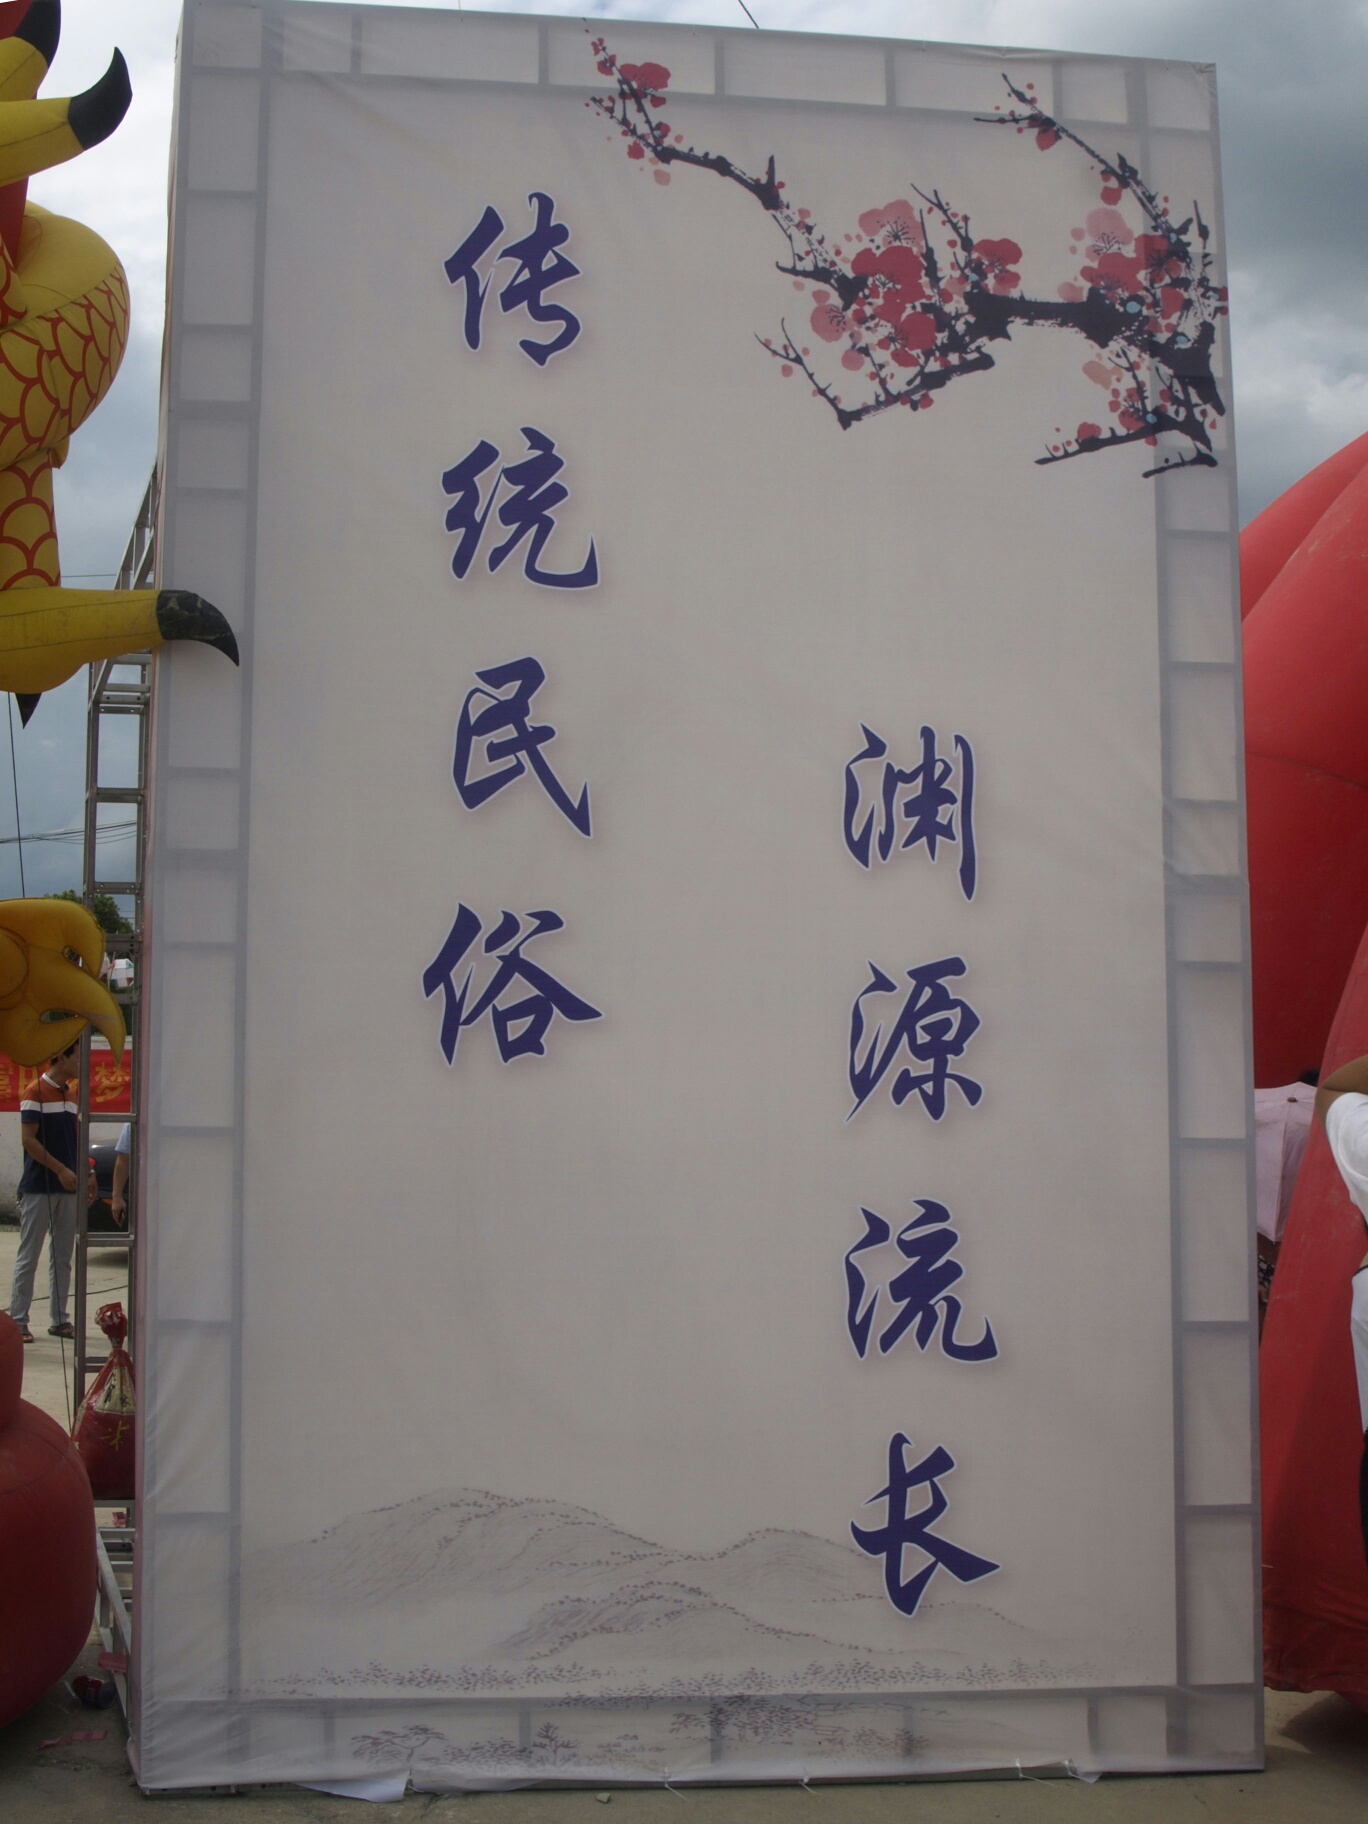 传统民俗
渊源流长
梦